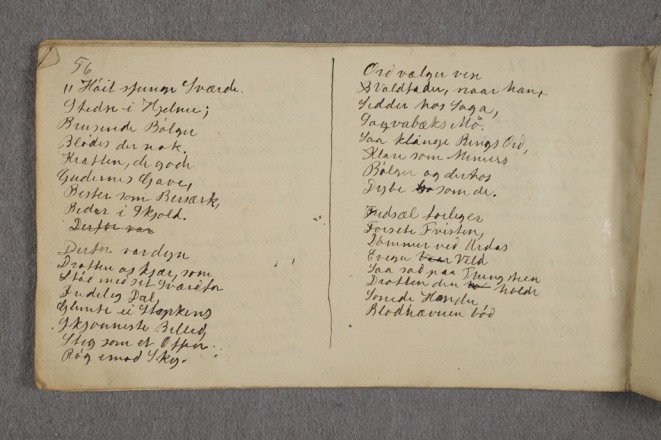 56
"Høit sjunge Sværde.
Stedse i Hjelme;
Brusende Bølger
Blodes der nok.
Kraften, de gode
Guders Gave,
Bister som Bersærk,
Bider i Skjold.
Derfor var
Derfor var dyn
Drotten os kjær, som
Stod med sit Sværd for
Fredelig Dal,
Skjønneste Billed,
Steg som et Offer
Røg imod Sky.
Ord vælger ven
Valdfader, naar han
Sidder hos Saga,
Søqvabæks Mø.
Saa klange Rings Ord,
Klare som Mimers
Bølger og derhos
Dybe som de.
Fredsæl forliger
Forsete Tvisten,
Dømmer ved Urdas
Evige Væld
Saa sad paa Thingsteen
Drotten den holdt
Sonede Hænder,
Blodhævnen bød